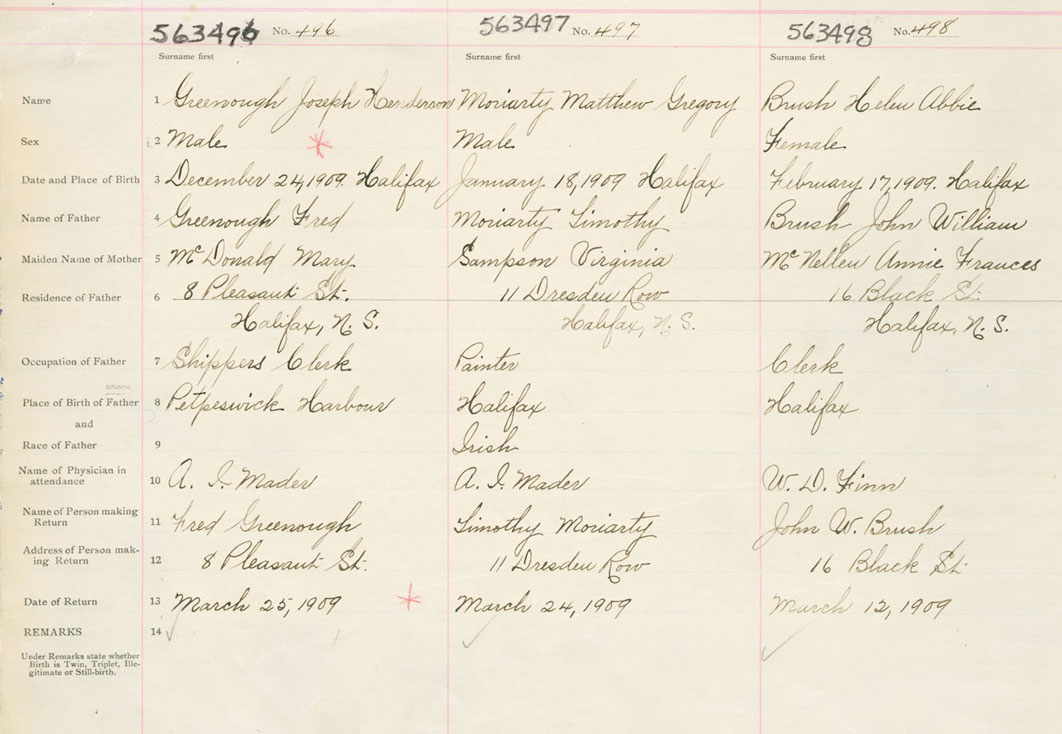 563496 No. 496 563497 No. 497 563498 No. 498
Surname first Surname first Surname first
Name 1 Greenough Joseph Henderson Moriarty Matthew Gregory Brush Helen Abbie
Sex 2 Male Male Female
Date and Place of Birth 3 December 24, 1909. Halifax January 18, 1909 Halifax February 17, 1909. Halifax
Name of Father 4 Greenough Fred Moriarty Timothy Brush John William
Maiden Name of Mother 5 McDonald Mary Sampson Virginia McNellen Annie Frances
Residence of Father 6 8 Pleasant St. 11 Dresden Row 16 Black St.
Halifax, N. S. Halifax, N. S. Halifax, N. S.
Occupation of Father 7 Shippers Clerk Painter Clerk
Place of Birth of Father 8 Petpeswick Harbour Halifax Halifax
and
Race of Father 9 Irish
Name of Physician in
attendance 10 A. I. Mader A. I. Mader W. D. Finn
Name of Person making
Return 11 Fred Greenough Timothy Moriarty John W. Brush
Address of Person mak-
ing Return 12 8 Pleasant St. 11 Dresden Row 16 Black St.
Date of Return 13 March 25, 1909 March 24, 1909 March 12, 1909
REMARKS 14
Under Remarks state whether
Birth is Twin, Triplet, Ille-
gitimate or Still-birth.